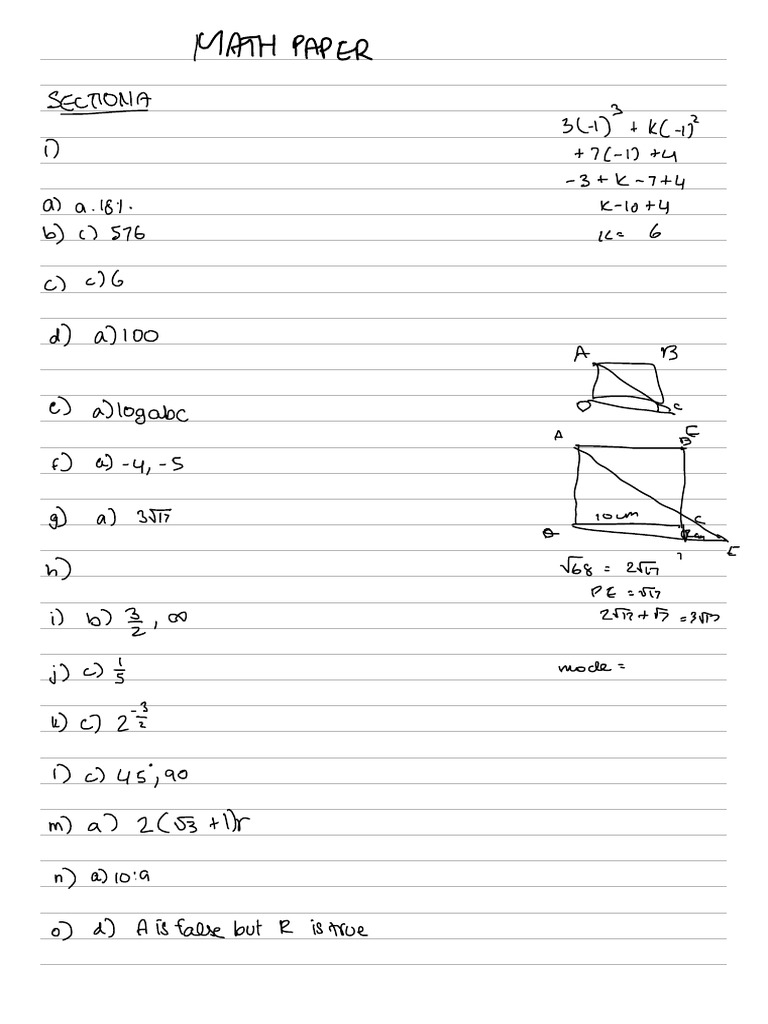 MATH PAPER
SECTION A
1)
a) a. 18%.
b) c) 576
c) c) 6
d) a) 100
e) a) logabc
f) a) -4, -5
g) a) 3√17
h)
i) b) 3/2, ∞
j) c) 1/5
k) c) 2^-3/2
l) c) 45°, 90
m) a) 2(√3 +1)r
n) a) 10:9
o) d) A is false but R is true
3(-1)^3 + K(-1)^2
+7(-1) +4
-3 + K -7+4
K-10+4
K= 6
A B
D C
A E
B
10cm C
D E
√68 = 2√17
PE = √17
2√17 + √17 = 3√17
mode =